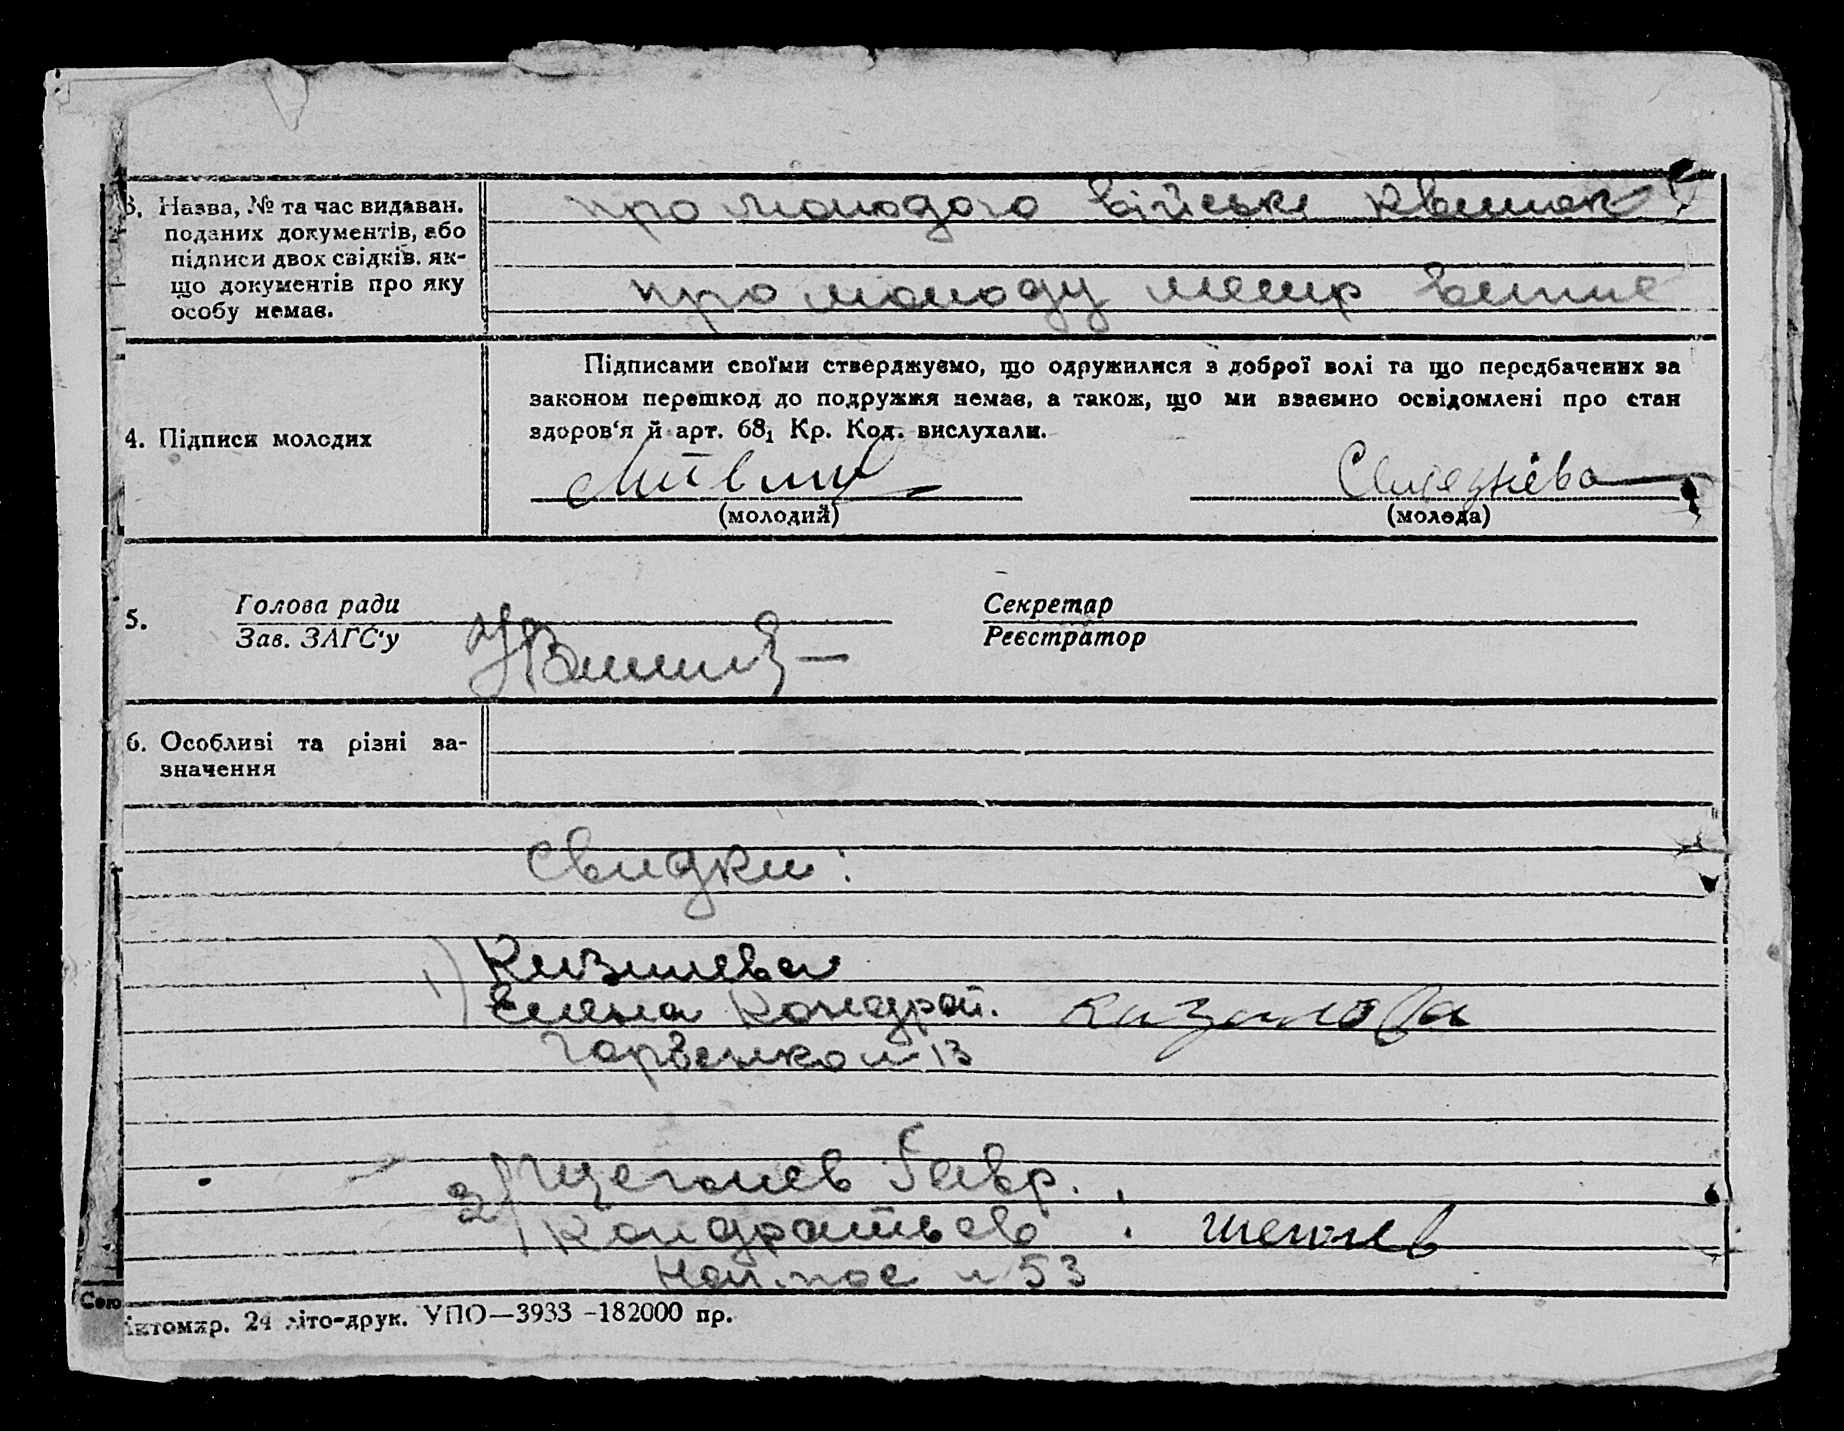 3. Назва, № та час видаван.
поданих документів, або
підписи двох свідків, як-
що документів про яку
особу немає.
про молодого військ квиток
про молоду метр витяг
4. Підписи молодих
Підписами своїми стверджуємо, що одружилися з доброї волі та що передбачених за
законом перешкод до подружжя немає, а також, що ми взаємно освідомлені про стан
здоров'я й арт. 68₁ Кр. Код. вислухали.
(молодий)
(молода)
5.
Голова ради
Зав. ЗАГС'у
Секретар
Реєстратор
6. Особливі та різні за-
значення
Свидки:
1)
Елена Кондрат. Казакова
13
2) Щеголев Гавр.
Кондратьев щеголев
53
Житомир. 24 літо-друк. УПО—3933 -182000 пр.